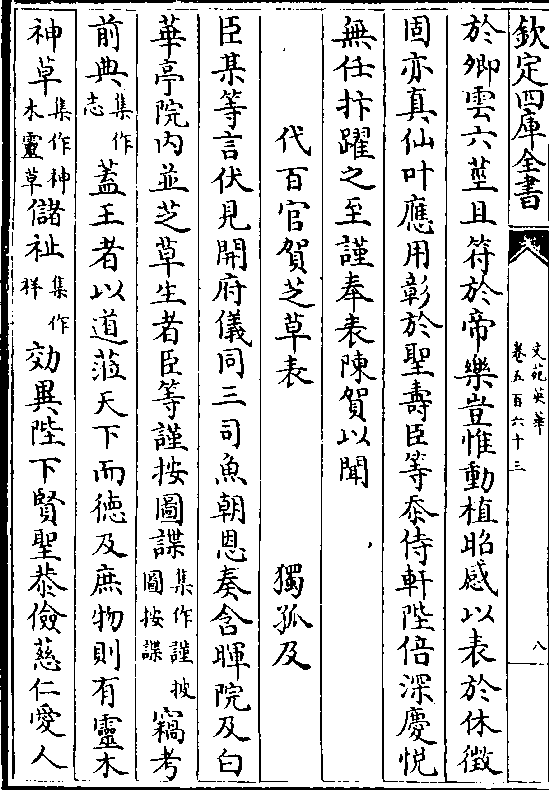 欽定四庫全書
文苑英華
卷五百六十三
八
於卿雲六莖且符於帝樂豈惟動植昭感以表於休徵
固亦真仙叶應用彰於聖壽臣等忝侍軒陛倍深慶悅
無任抃躍之至謹奉表陳賀以聞
代百官賀芝草表 獨孤及
臣某等言伏見開府儀同三司魚朝恩奏含暉院及白
華亭院内並芝草生者臣等謹按圖諜集作謹披圖按諜竊考
前典集作志蓋王者以道蒞天下而徳及庶物則有靈木
神草集作神木靈草儲祉集作祥效異陛下賢聖恭儉慈仁愛人